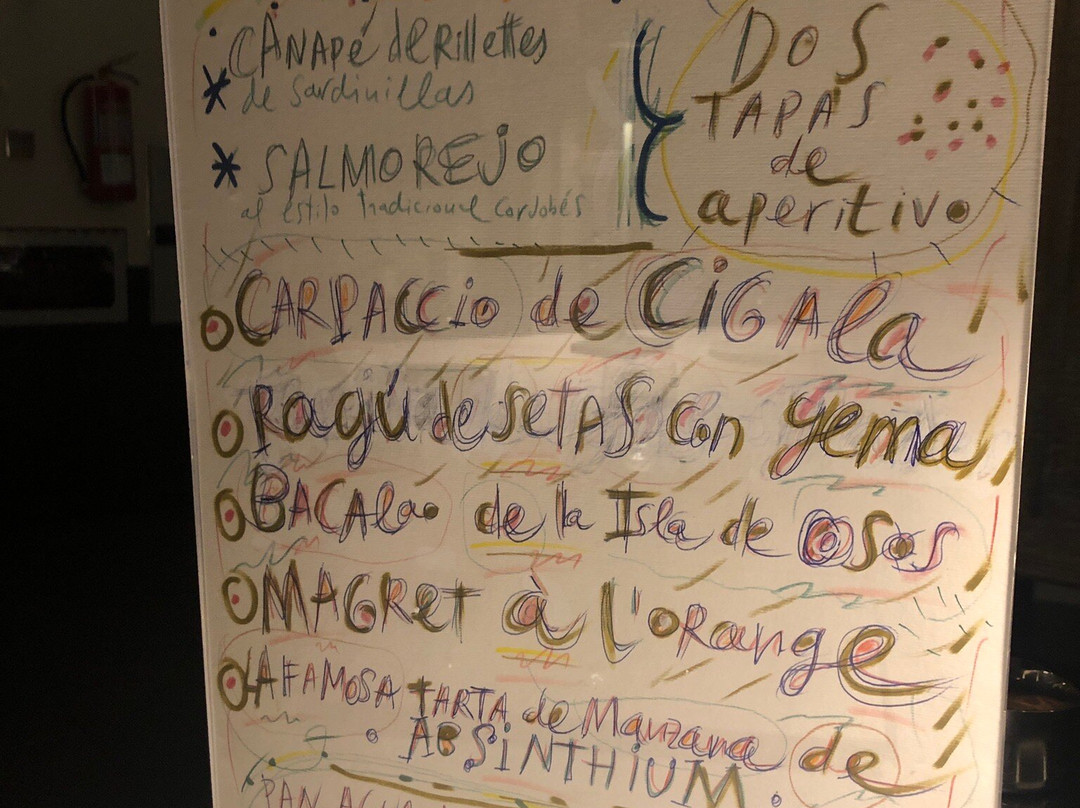 * CANAPé de Rillettes
de sardinillas
* SALMOREJO
al estilo tradicional cordobés
DOS
TAPAS
de
aperitivo
CARPACCio de CiGAla
Ragú de seTAS con yema
BACAlao de la Isla de OSOS
MAGReT à l'oRange
LA FAMOSA TARTA de Manzana de
ABSiNTHiUM
PAN, AGUA